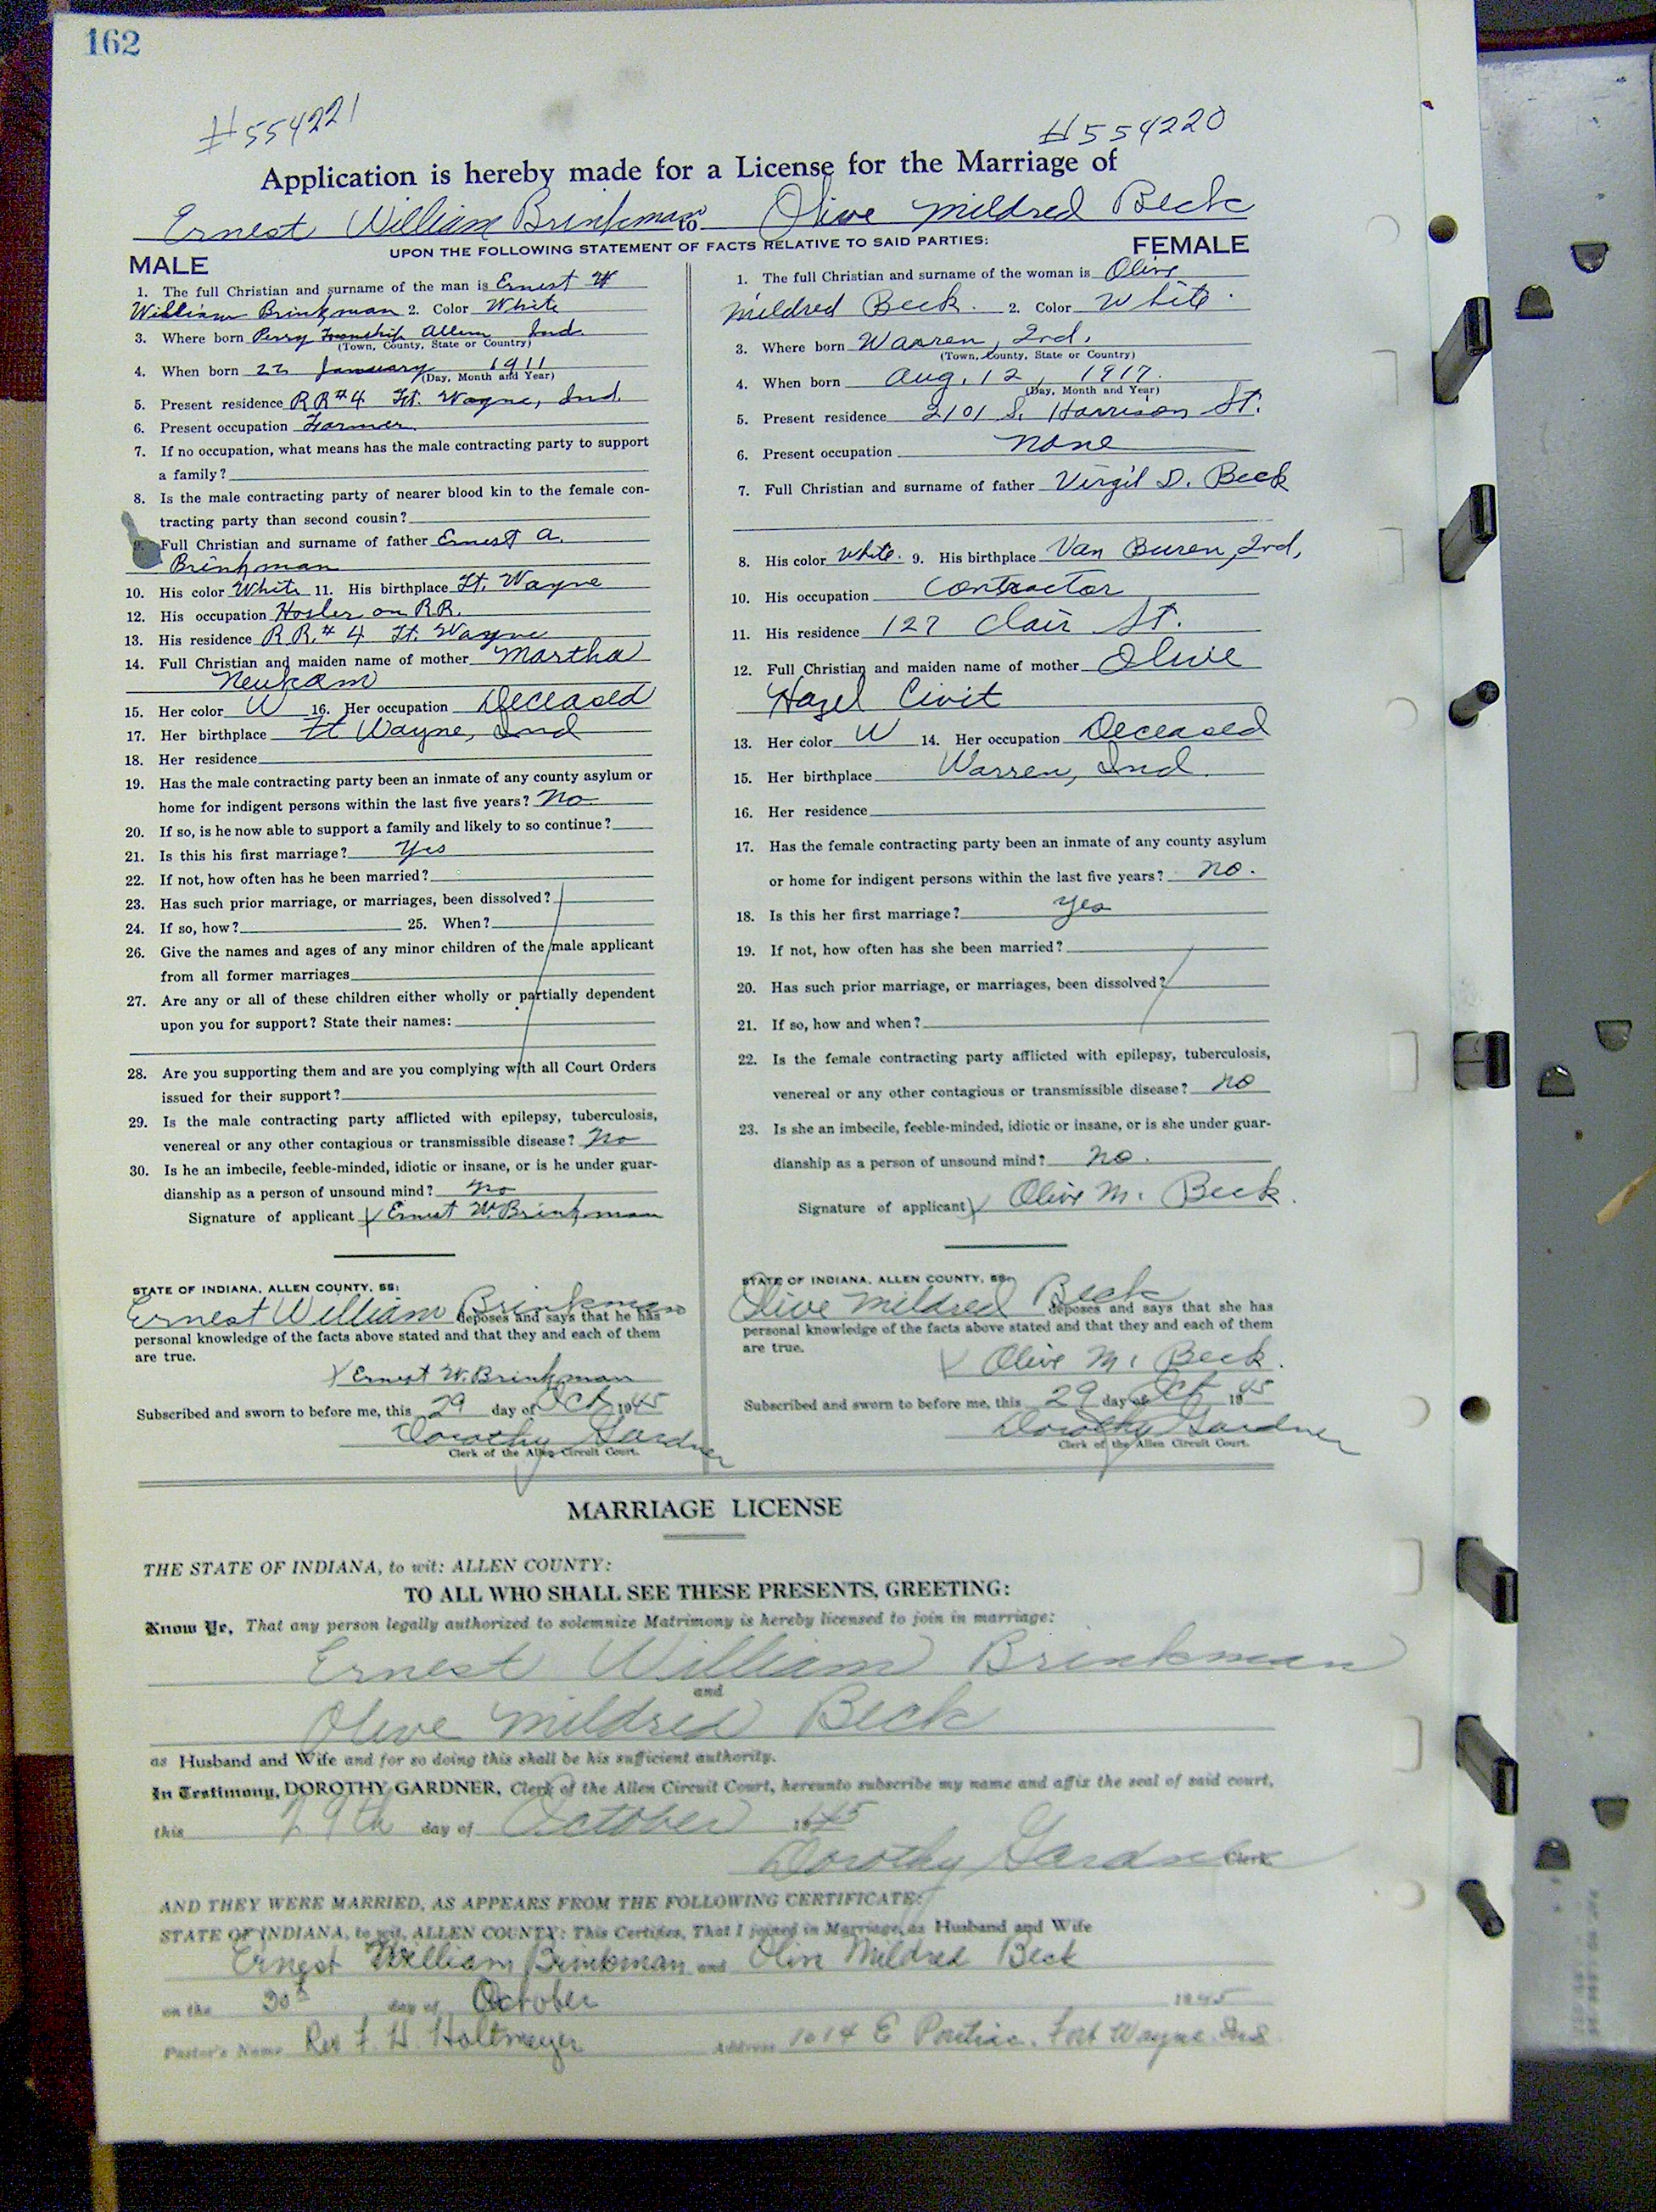 162
#554221 #554220
Application is hereby made for a License for the Marriage of
Ernest William Brinkman to Olive Mildred Beck
UPON THE FOLLOWING STATEMENT OF FACTS RELATIVE TO SAID PARTIES:
MALE
1. The full Christian and surname of the man is Ernest W
William Brinkman 2. Color White
3. Where born Perry Township Allen Ind.
(Town, County, State or Country)
4. When born 22 January 1911
(Day, Month and Year)
5. Present residence RR#4 Ft. Wayne, Ind.
6. Present occupation Farmer
7. If no occupation, what means has the male contracting party to support
a family?
8. Is the male contracting party of nearer blood kin to the female con-
tracting party than second cousin?
9. Full Christian and surname of father Ernest A.
Brinkman
10. His color White 11. His birthplace Ft. Wayne
12. His occupation Hosler on RR.
13. His residence RR.#4 Ft. Wayne
14. Full Christian and maiden name of mother Martha
Neukam
15. Her color W 16. Her occupation Deceased
17. Her birthplace Ft Wayne, Ind
18. Her residence
19. Has the male contracting party been an inmate of any county asylum or
home for indigent persons within the last five years? No
20. If so, is he now able to support a family and likely to so continue?
21. Is this his first marriage? Yes
22. If not, how often has he been married?
23. Has such prior marriage, or marriages, been dissolved?
24. If so, how? 25. When?
26. Give the names and ages of any minor children of the male applicant
from all former marriages
27. Are any or all of these children either wholly or partially dependent
upon you for support? State their names:
28. Are you supporting them and are you complying with all Court Orders
issued for their support?
29. Is the male contracting party afflicted with epilepsy, tuberculosis,
venereal or any other contagious or transmissible disease? No
30. Is he an imbecile, feeble-minded, idiotic or insane, or is he under guar-
dianship as a person of unsound mind? No
Signature of applicant X Ernest W. Brinkman
STATE OF INDIANA, ALLEN COUNTY, SS:
Ernest William Brinkman deposes and says that he has
personal knowledge of the facts above stated and that they and each of them
are true.
X Ernest W. Brinkman
Subscribed and sworn to before me, this 29 day of Oct 1945
Dorothy Gardner
Clerk of the Allen Circuit Court.
FEMALE
1. The full Christian and surname of the woman is Olive
Mildred Beck. 2. Color White.
3. Where born Warren, Ind.
(Town, County, State or Country)
4. When born Aug. 12, 1917.
(Day, Month and Year)
5. Present residence 2101 S. Harrison St.
6. Present occupation None
7. Full Christian and surname of father Virgil D. Beck
8. His color White. 9. His birthplace Van Buren, Ind,
10. His occupation Contractor
11. His residence 127 Clair St.
12. Full Christian and maiden name of mother Olive
Hazel Civit
13. Her color W 14. Her occupation Deceased
15. Her birthplace Warren, Ind.
16. Her residence
17. Has the female contracting party been an inmate of any county asylum
or home for indigent persons within the last five years? No.
18. Is this her first marriage? Yes
19. If not, how often has she been married?
20. Has such prior marriage, or marriages, been dissolved?
21. If so, how and when?
22. Is the female contracting party afflicted with epilepsy, tuberculosis,
venereal or any other contagious or transmissible disease? No
23. Is she an imbecile, feeble-minded, idiotic or insane, or is she under guar-
dianship as a person of unsound mind? No.
Signature of applicant X Olive M. Beck.
STATE OF INDIANA, ALLEN COUNTY, SS:
Olive Mildred Beck deposes and says that she has
personal knowledge of the facts above stated and that they and each of them
are true.
X Olive M. Beck.
Subscribed and sworn to before me, this 29 day of Oct 1945
Dorothy Gardner
Clerk of the Allen Circuit Court.
MARRIAGE LICENSE
THE STATE OF INDIANA, to wit: ALLEN COUNTY:
TO ALL WHO SHALL SEE THESE PRESENTS, GREETING:
Know Ye, That any person legally authorized to solemnize Matrimony is hereby licensed to join in marriage:
Ernest William Brinkman
and
Olive Mildred Beck
as Husband and Wife and for so doing this shall be his sufficient authority.
In Testimony, DOROTHY GARDNER, Clerk of the Allen Circuit Court, hereunto subscribe my name and affix the seal of said court,
this 29th day of October 1945
Dorothy Gardner Clerk
AND THEY WERE MARRIED, AS APPEARS FROM THE FOLLOWING CERTIFICATE:
STATE OF INDIANA, to wit, ALLEN COUNTY: This Certifies, That I joined in Marriage, as Husband and Wife
Ernest William Brinkman and Olive Mildred Beck
on the 30th day of October 1945
Pastor's Name Rev F. H. Holtmeyer Address 1614 E Pontiac. Fort Wayne Ind